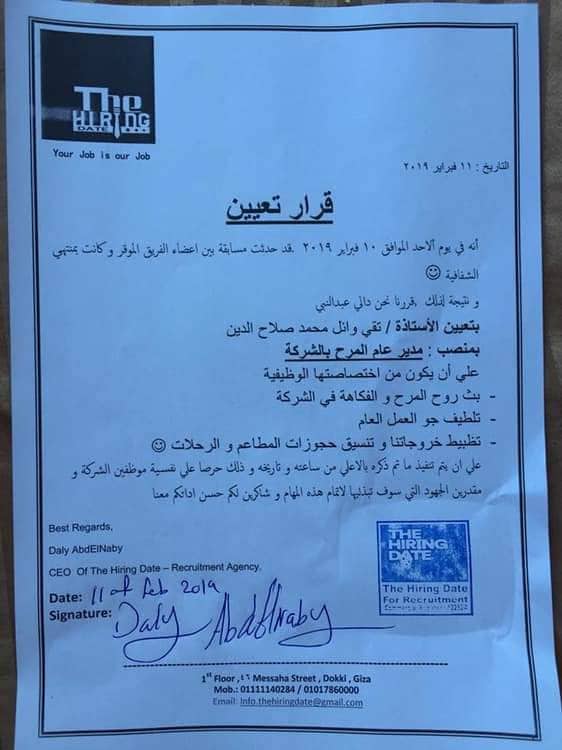 The
HIRING
DATE
Your Job is our Job
التاريخ : ١١ فبراير ٢٠١٩
قرار تعيين
أنه في يوم ألاحد الموافق ١٠ فبراير ٢٠١٩ .قد حدثت مسابقة بين اعضاء الفريق الموقر و كانت بمنتهي
الشفافية ☺
و نتيجة لذلك ,قررنا نحن دالي عبدالنبي
بتعيين الأستاذة / تقي وائل محمد صلاح الدين
بمنصب : مدير عام المرح بالشركة
علي أن يكون من اختصاصتها الوظيفية
- بث روح المرح و الفكاهة في الشركة
- تلطيف جو العمل العام
- تظبيط خروجاتنا و تنسيق حجوزات المطاعم و الرحلات ☺
علي ان يتم تنفيذ ما تم ذكره بالاعلي من ساعته و تاريخه و ذلك حرصا علي نفسية موظفين الشركة و
مقدرين الجهود التي سوف تبذليها لاتمام هذه المهام و شاكرين لكم حسن ادائكم معنا
Best Regards,
Daly AbdElNaby
CEO Of The Hiring Date – Recruitment Agency.
Date: 11 of Feb 2019
Signature: Daly AbdElNaby
THE
HIRING
DATE
The Hiring Date
For Recruitment
1st Floor ,٤٦ Messaha Street , Dokki , Giza
Mob.: 01111140284 / 01017860000
Email: Info.thehiringdate@gmail.com